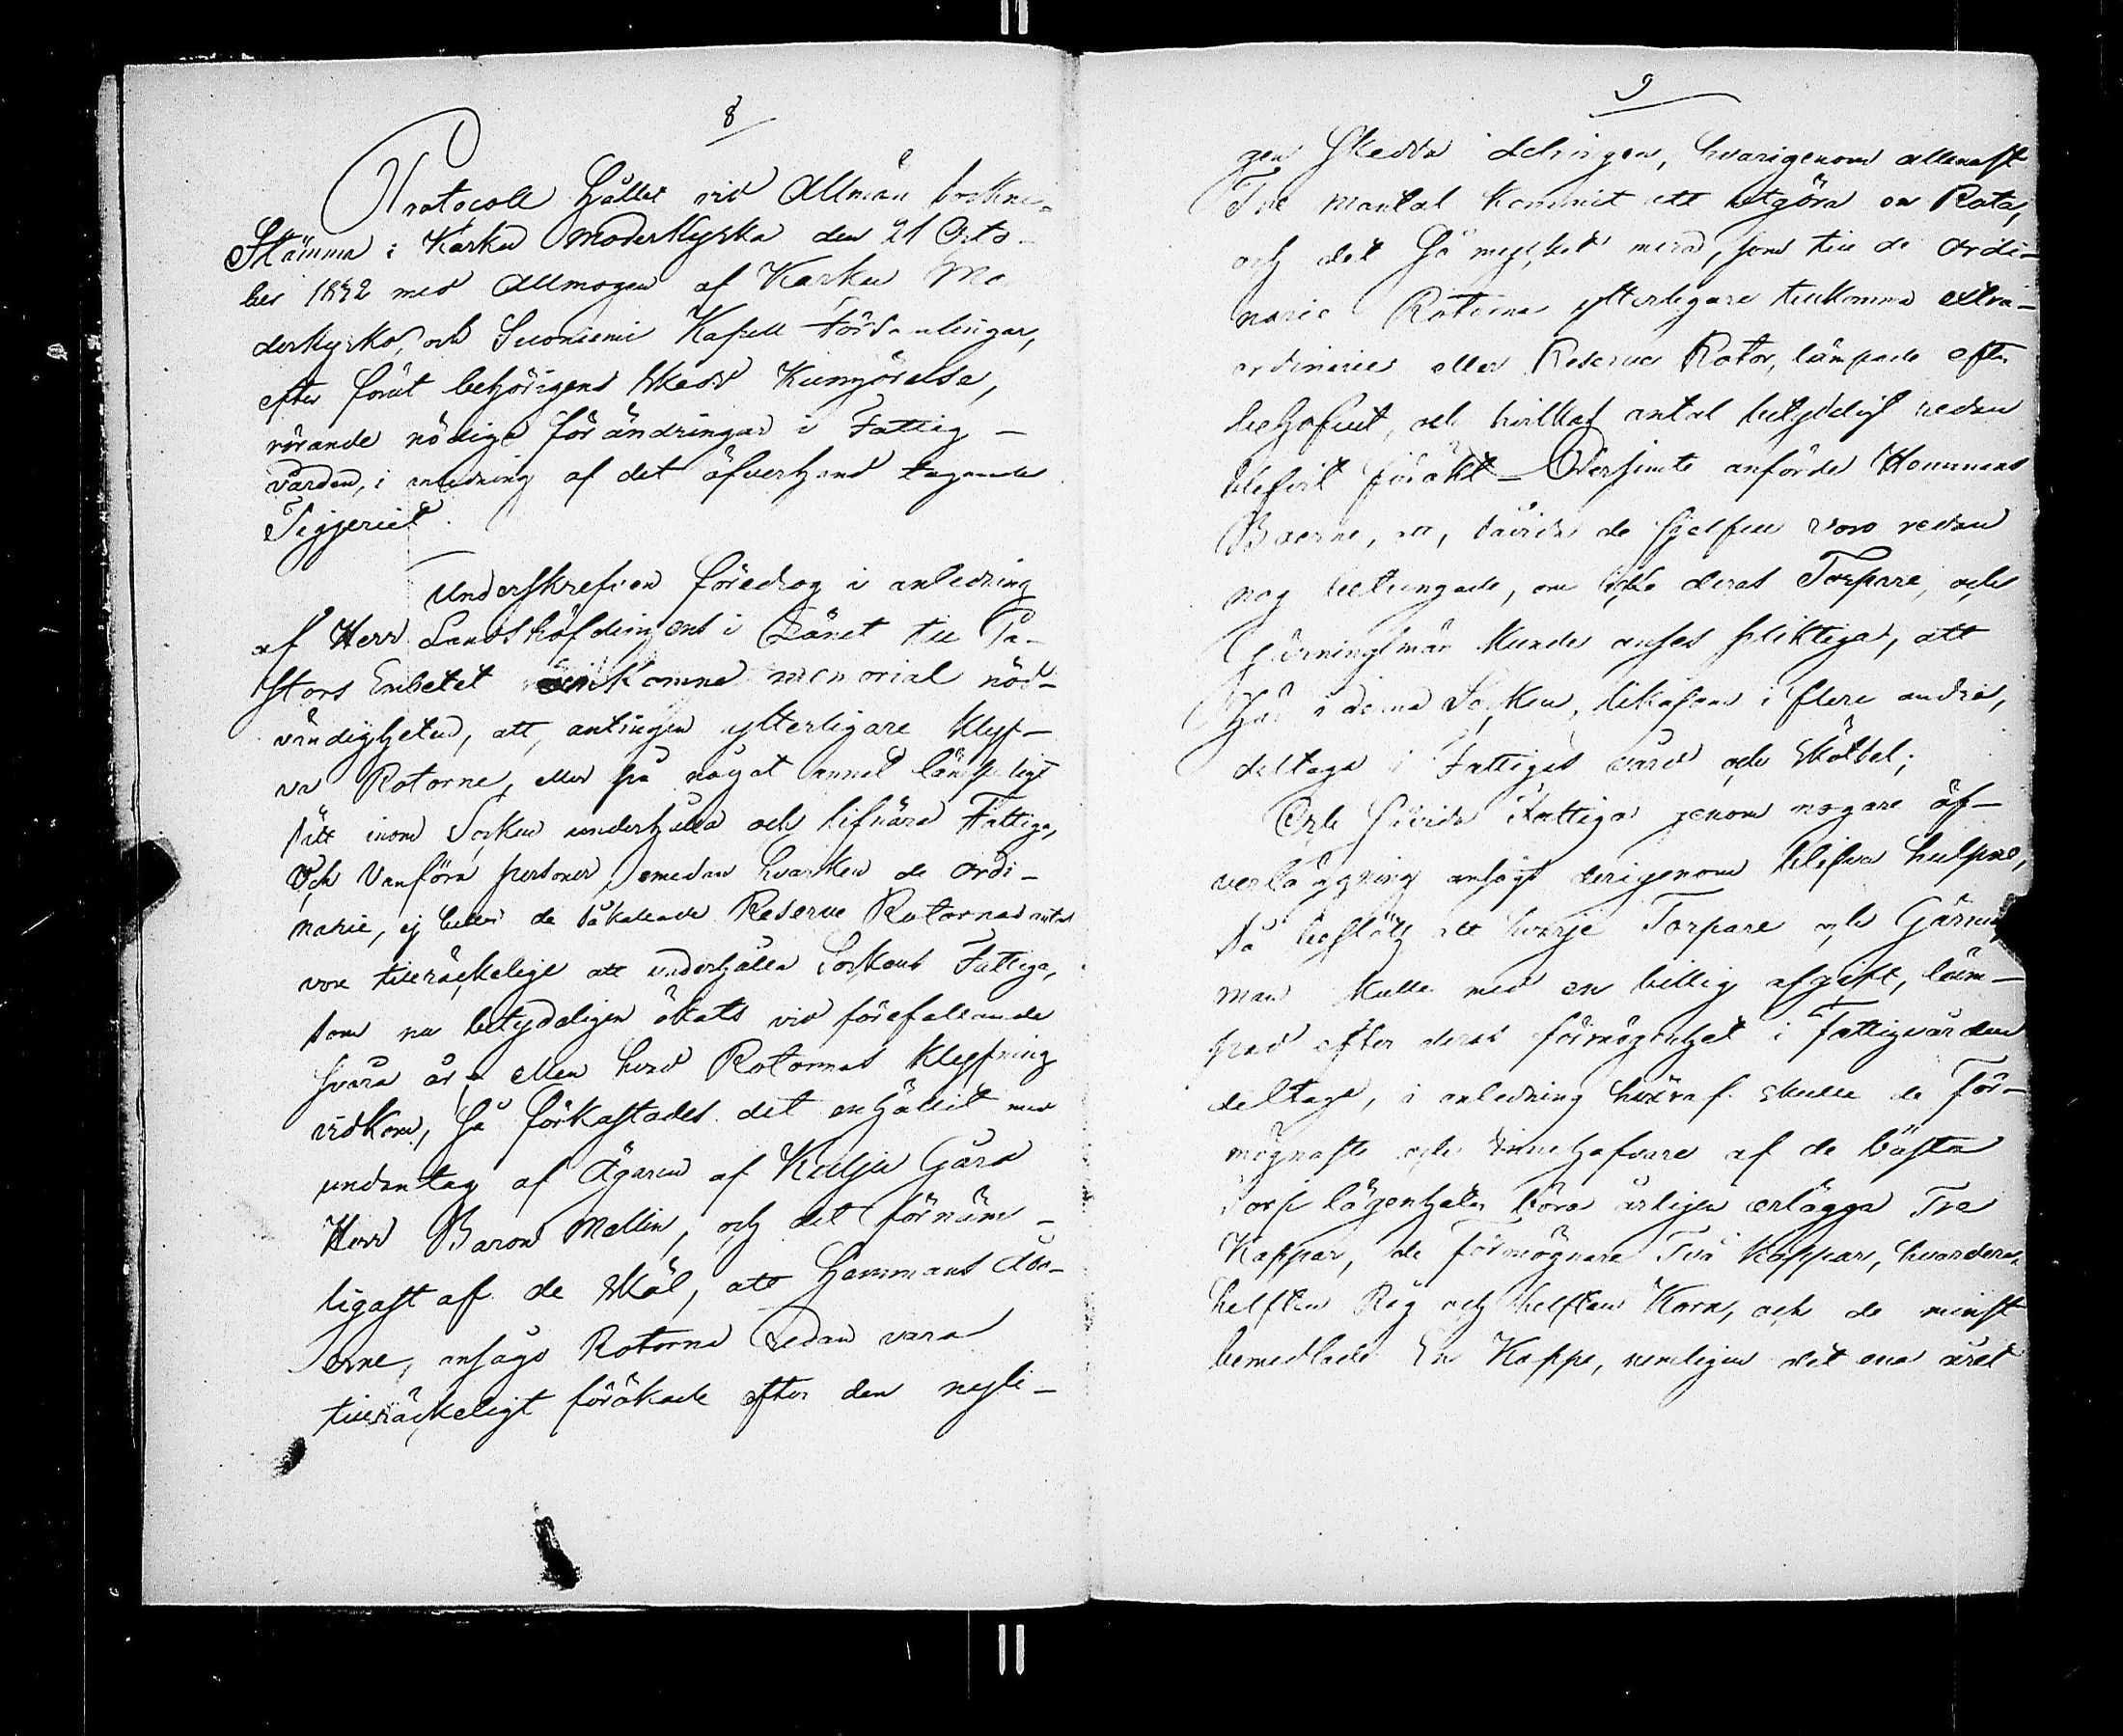 8
Protocoll hållet vid Allmän Sockne-
Stämma i Karku Moderkyrka den 21 Octo-
ber 1832 med Allmogen af Karku Mo
derkyrko, och Suoniemi Kapell Församlingar,
efter förut behörigens skedd Kungörelse,
rörande nödiga förändringar i Fattig-
vården, i anledning af det öfverhand tagande
Tiggeriet.
Underskrefven föredrog i anledning
af Herr Landshöfdingens i Länet till Pa-
stors Embetet ankomne memorial nöd-
vändigheten, att, antingen ytterligare klyf-
va Rotorne, eller på något annat lämpeligt
sätt inom Socken underhålla och lifnära Fattige,
Och Vanföra personer, emedan hvarken de ordi-
narie, ej heller de såkallade Reserve Rotornas antal
vore tillräckelige att underhålla Sockens Fattige,
som nu betydeligen ökats vid förefallande
svåra år. Men hvad Rotornas Klyfning
vidkom, så förkastades det enhälligt med
undantag af Ägaren af Kulju Gård
Herr Baron Mellin, och det förnäm-
ligast af de skäl, att Hemmans Åbo-
erne, ansågo Rotorne redan vara
tillräckeligt förökade efter den nyli-
9
gen skedda delningen, hvarigenom allenast
Tre Mantal kommit att utgöra en Rota,
och det så mycket mera, som till de ordi-
narie Rotorne ytterligare tillkomma extra-
ordinarie eller Reserve Rotor, lämpade efter
behofvet, och hvilkas antal betydeligt redan
blefvit förökt - Dersamte anförde Hemmans
Boerne, att, såvida de sjelfve voro redan
nog betungade, om icke deras Torpare, och
Gärningsmän kunde anses pliktiga, att
här i denna Socken, likasom i flere andra,
deltaga i Fattiges vård och skötsel;
Och såvida Fattiga genom nogare öf-
verläggning ansågs derigenom blifva hulpne,
så beslöts att hvarje Torpare och Gärnings
man skulle med en billig afgift, läm-
pad efter deras förmögenhet i Fattigvården
deltaga, i anledning hvaraf skulle de för-
mögnaste och innehafvare af de bästa
Torp lägenheter böra årligen erlägga Tre
Kappar, de förmögnare Två Kappar, hvardera
helften Råg och helften Korn, och de minst
bemedlade En Kappe, nemligen det ena året